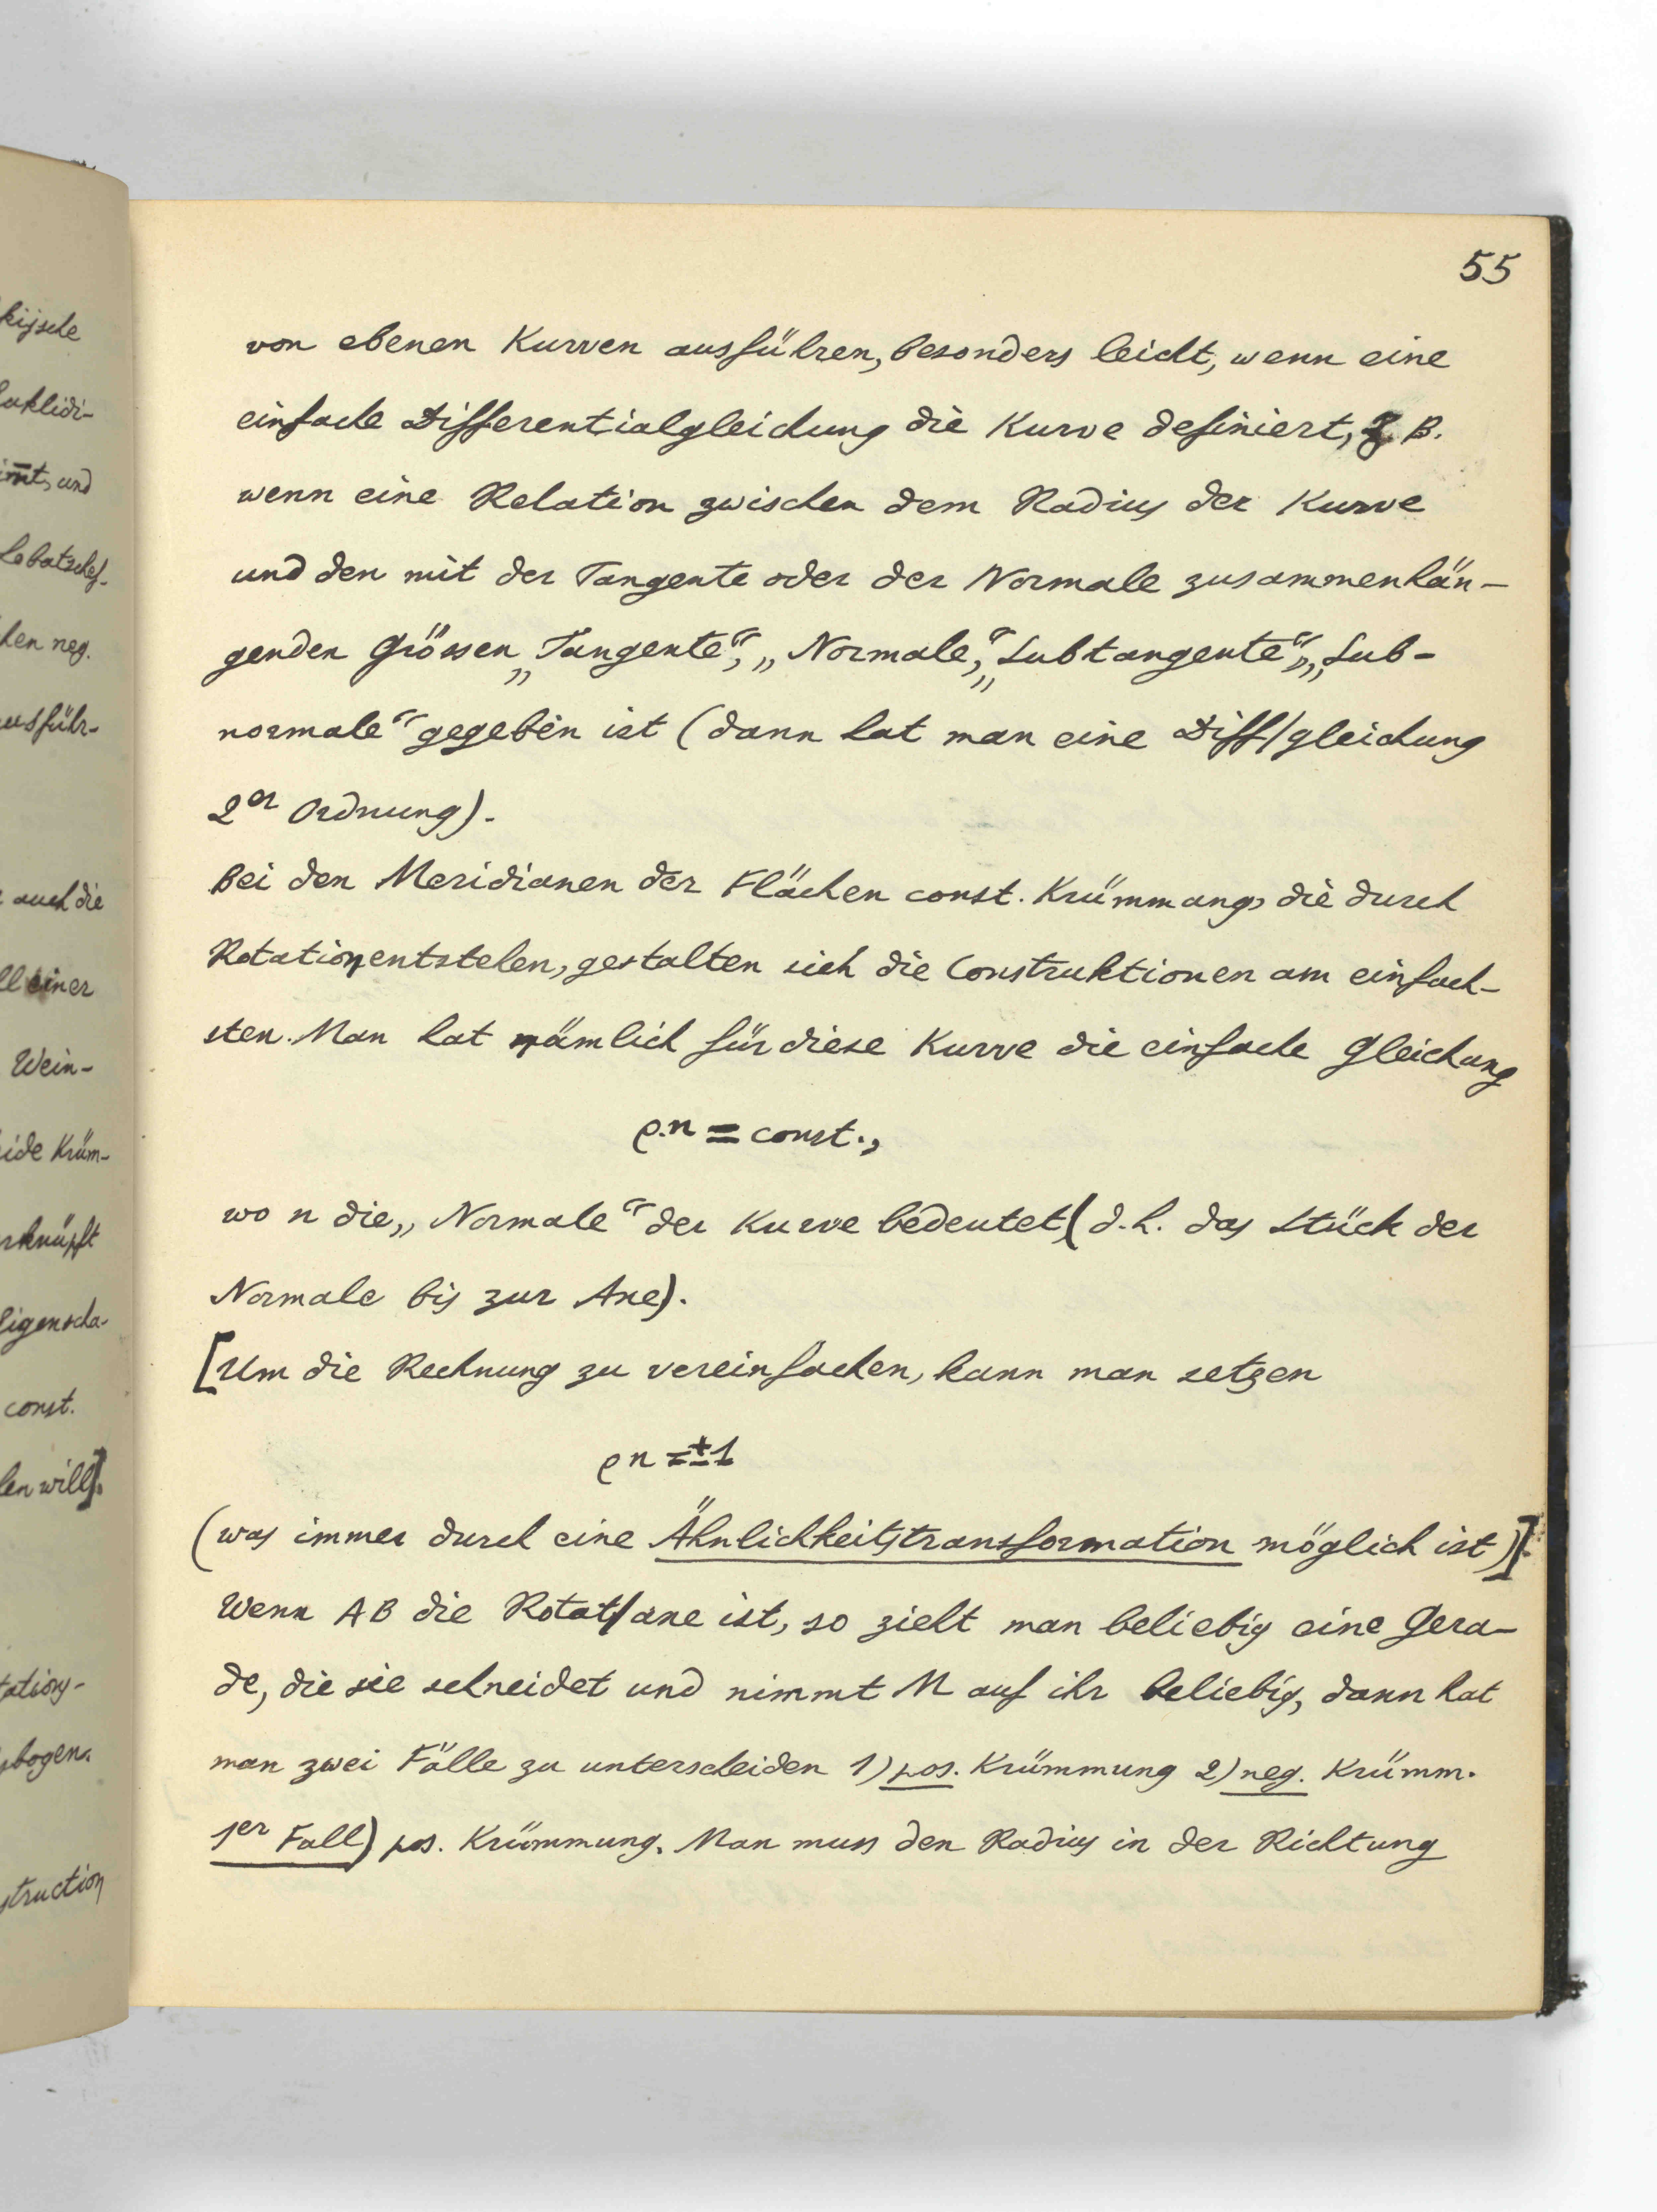 55
von ebenen Kurven ausführen, besonders leicht, wenn eine
einfache Differentialgleichung die Kurve definiert, z. B.
wenn eine Relation zwischen dem Radius der Kurve
und den mit der Tangente oder der Normale zusammenhän-
genden Grössen „Tangente“, „Normale“, „Subtangente“, „Sub-
normale“ gegeben ist (dann hat man eine Diff/gleichung
2er Ordnung).
Bei den Meridianen der Flächen const. Krümmung, die durch
Rotation entstehen, gestalten sich die Construktionen am einfach-
sten. Man hat nämlich für diese Kurve die einfache Gleichung
ρ.n = const.,
wo n die „Normale“ der Kurve bedeutet (d.h. das Stück der
Normale bis zur Axe).
[Um die Rechnung zu vereinfachen, kann man setzen
ρn = ±1
(was immer durch eine Ähnlichkeitstransformation möglich ist)].
Wenn AB die Rotat/axe ist, so zieht man beliebig eine Gera-
de, die sie schneidet und nimmt M auf ihr beliebig, dann hat
man zwei Fälle zu unterscheiden 1) pos. Krümmung 2) neg. Krümm.
1er Fall) pos. Krümmung. Man muss den Radius in der Richtung
kijsche
uklidi-
und
Lobatschef-
hen neg.
usführ-
auch die
einer
Wein-
ide Krüm-
rknüpft
Eigenscha-
const.
len will].
tations-
sbogen.
struction